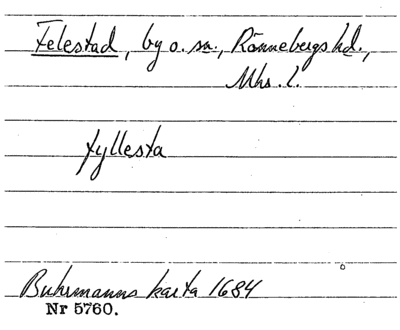 Felestad, by o. sn., Rönnebergs hd.,
Mhs. l.
fyllesta
Buhrmanns karta 1684
Nr 5760.